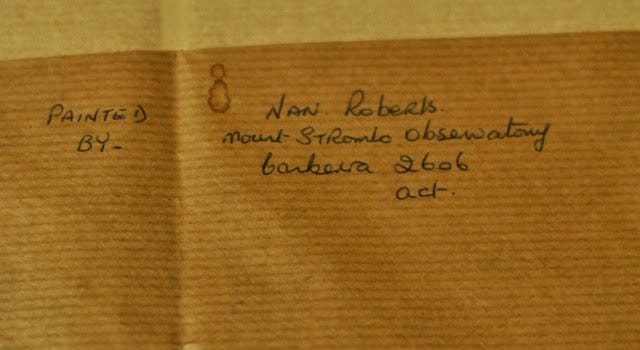 PAINTED
BY-
NAN. Roberts
Mount Stromlo Observatory
Canberra 2606
act.